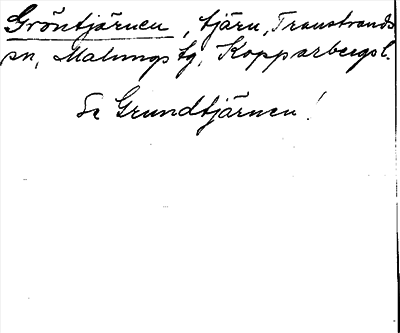 Gröntjärnen, tjärn, Transtrands
sn, Malungs tg, Kopparbergs l.
Se Grundtjärnen!